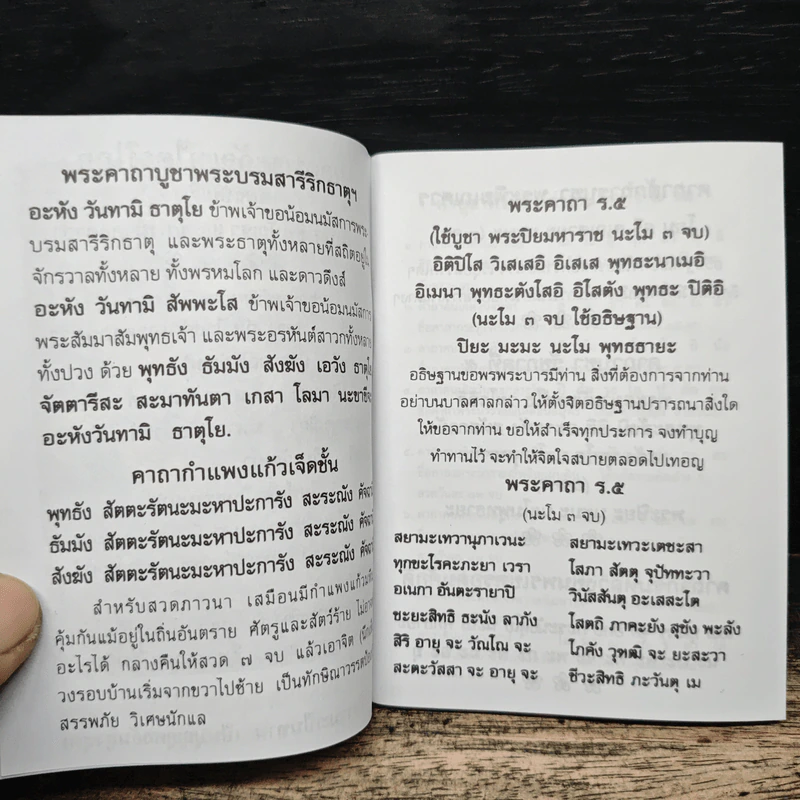 พระคาถาบูชาพระบรมสารีริกธาตุฯ
อะหัง วันทามิ ธาตุโย ข้าพเจ้าขอน้อมนมัสการพระ
บรมสารีริกธาตุ และพระธาตุทั้งหลายที่สถิตอยู่ใน
จักรวาลทั้งหลาย ทั้งพรหมโลก และดาวดึงส์
อะหัง วันทามิ สัพพะโส ข้าพเจ้าขอน้อมนมัสการ
พระสัมมาสัมพุทธเจ้า และพระอรหันต์สาวกทั้งหลาย
ทั้งปวง ด้วย พุทธัง ธัมมัง สังฆัง เอวัง ธาตุโย
จัตตารีสะ สะมาทันตา เกสา โลมา นะขาปิจะ
อะหังวันทามิ ธาตุโย.
คาถากำแพงแก้วเจ็ดชั้น
พุทธัง สัตตะรัตนะมะหาปะการัง สะระณัง คัจฉามิ
ธัมมัง สัตตะรัตนะมะหาปะการัง สะระณัง คัจฉามิ
สังฆัง สัตตะรัตนะมะหาปะการัง สะระณัง คัจฉามิ
สำหรับสวดภาวนา เสมือนมีกำแพงแก้ว
คุ้มกันแม้อยู่ในถิ่นอันตราย ศัตรูและสัตว์ร้าย
อะไรได้ กลางคืนให้สวด ๗ จบ แล้วเอาจิต
วงรอบบ้านเริ่มจากขวาไปซ้าย เป็นทักษิณาวรรต
สรรพภัย วิเศษนักแล
พระคาถา ร.๕
(ใช้บูชา พระปิยมหาราช นะโม ๓ จบ)
อิติปิโส วิเสเสอิ อิเสเส พุทธะนาเมอิ
อิเมนา พุทธะตังโสอิ อิโสตัง พุทธะ ปิติอิ
(นะโม ๓ จบ ใช้อธิษฐาน)
ปิยะ มะมะ นะโม พุทธธายะ
อธิษฐานขอพรพระบารมีท่าน สิ่งที่ต้องการจากท่าน
อย่าบนบาลศาลกล่าว ให้ตั้งจิตอธิษฐานปรารถนาสิ่งใด
ให้ขอจากท่าน ขอให้สำเร็จทุกประการ จงทำบุญ
ทำทานไว้ จะทำให้จิตใจสบายตลอดไปเทอญ
พระคาถา ร.๕
(นะโม ๓ จบ)
สยามะเทวานุภาเวนะ สยามะเทวะเตชะสา
ทุกขะโรคะภะยา เวรา โสภา สัตตุ จุปัททะวา
อเนกา อันตะรายาปิ วินัสสันตุ อะเสสะโต
ชะยะสิทธิ ธะนัง ลาภัง โสตถิ ภาคะยัง สุขัง พะลัง
สิริ อายุ จะ วัณโณ จะ โภคัง วุฑฒิ จะ ยะสะวา
สะตะวัสสา จะ อายุ จะ ชีวะสิทธิ ภะวันตุ เม